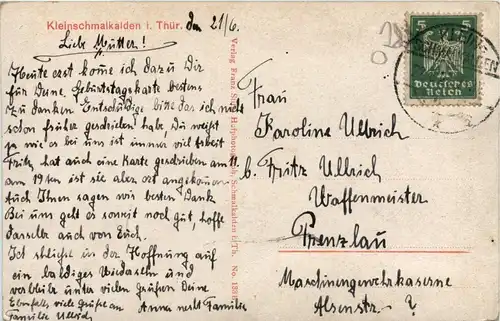 Kleinschmalkalden i. Thür. den 21/6.
Liebe Mutter!
Heute erst kome ich dazu Dir
für Deine Geburtstagskarte bestens
zu danken. Entschuldige bitte das ich nicht
schon früher geschrieben habe Du weißt
ja wie es bei uns ist immer viel Arbeit
Fritz hat auch eine Karte geschrieben am 11.
am 19ten ist sie aber ort angekomen
Auch Ihnen sagen wir besten Dank
Bei uns geht es soweit noch gut, hoffe
dasselbe auch von Euch.
Ich schließe in der Hoffnung auf
ein baldiges Wiedersehn und
verbleibe unter vielen Grüßen Deine
Ebenfals viele Grüße an Anna nebst Familie
Familie Ullrich
Verlag Franz Hofphotograph, Schmalkalden i. Th. No.
5 5
Deutsches
Reich
Frau
Karoline Ullrich
b. Fritz Ullrich
Waffenmeister
Prenzlau
Maschinengewehrkaserne
Alsenstr. ?